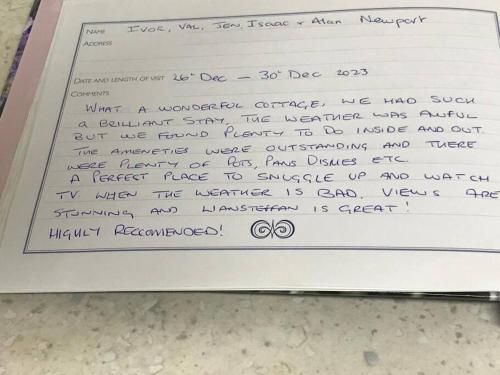 NAME IVOR, VAL, JEN, ISAAC + Alan Newport
ADDRESS
DATE AND LENGTH OF VISIT 26th Dec – 30th Dec 2023
COMMENTS
WHAT A WONDERFUL COTTAGE, WE HAD SUCH
A BRILLIANT STAY, THE WEATHER WAS AWFUL
BUT WE FOUND PLENTY TO DO INSIDE AND OUT.
THE AMENETIES WERE OUTSTANDING AND THERE
WERE PLENTY OF POTS, PANS DISHES ETC.
A PERFECT PLACE TO SNUGGLE UP AND WATCH
TV WHEN THE WEATHER IS BAD. VIEWS ARE
STUNNING AND LLANSTEFFAN IS GREAT!
HIGHLY RECCOMENDED!